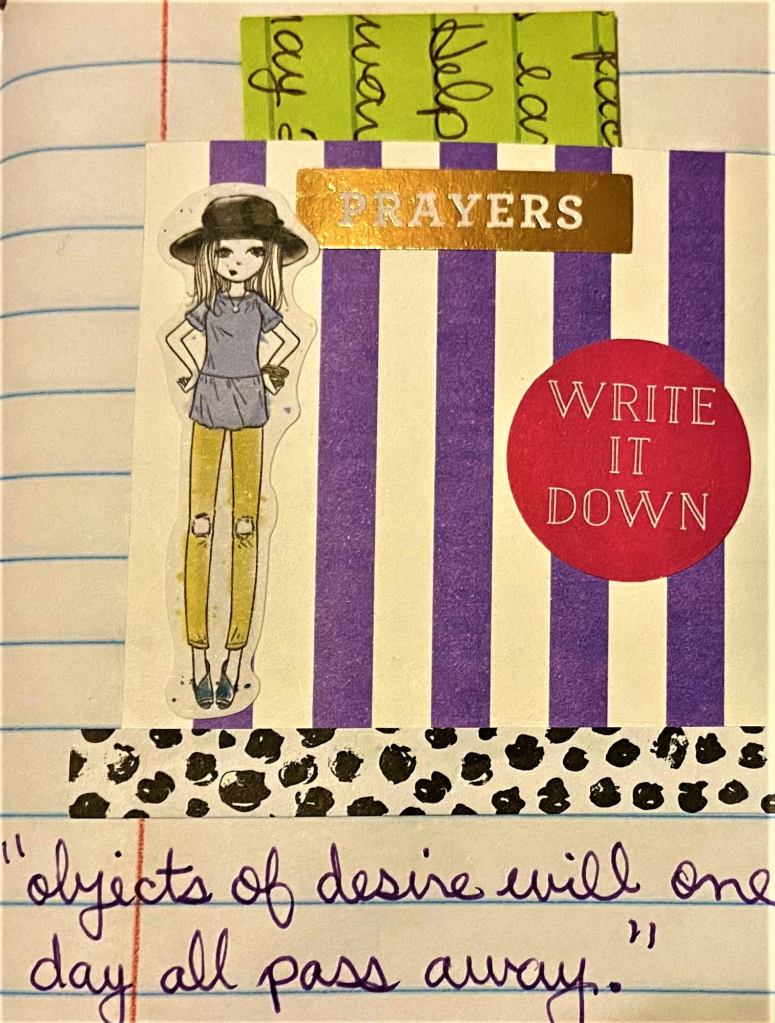 Help
PRAYERS
WRITE
IT
DOWN
"objects of desire will one
day all pass away."